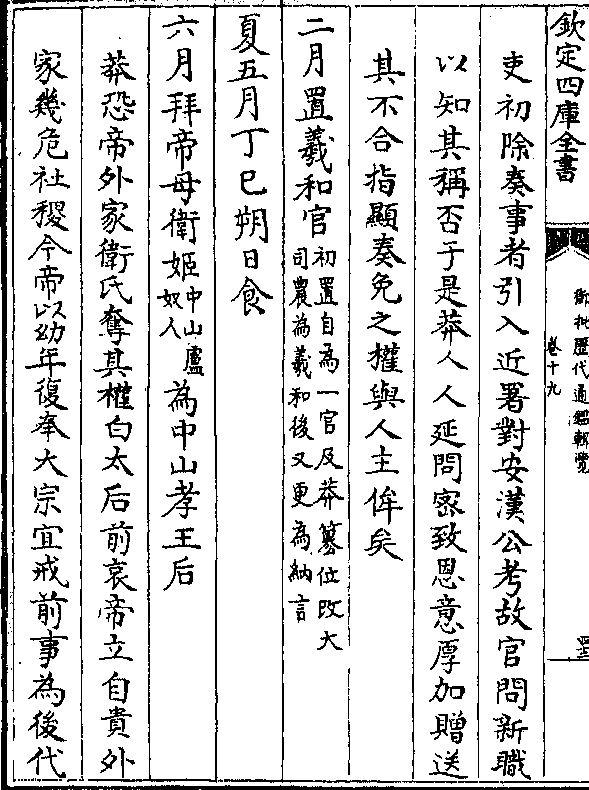 欽定四庫全書
御批歷代通鑑輯覽
卷十九
吏初除奏事者引入近署對安漢公考故官問新職
以知其稱否于是莽人人延問密致恩意厚加贈送
其不合指顯奏免之權與人主侔矣
二月置羲和官初置自為一官及莽篡位改大
司農為羲和後又更為納言
夏五月丁巳朔日食
六月拜帝母衛姬中山盧
奴人為中山孝王后
莽恐帝外家衛氏奪其權白太后前哀帝立自貴外
家幾危社稷今帝以幼年復奉大宗宜戒前事為後代